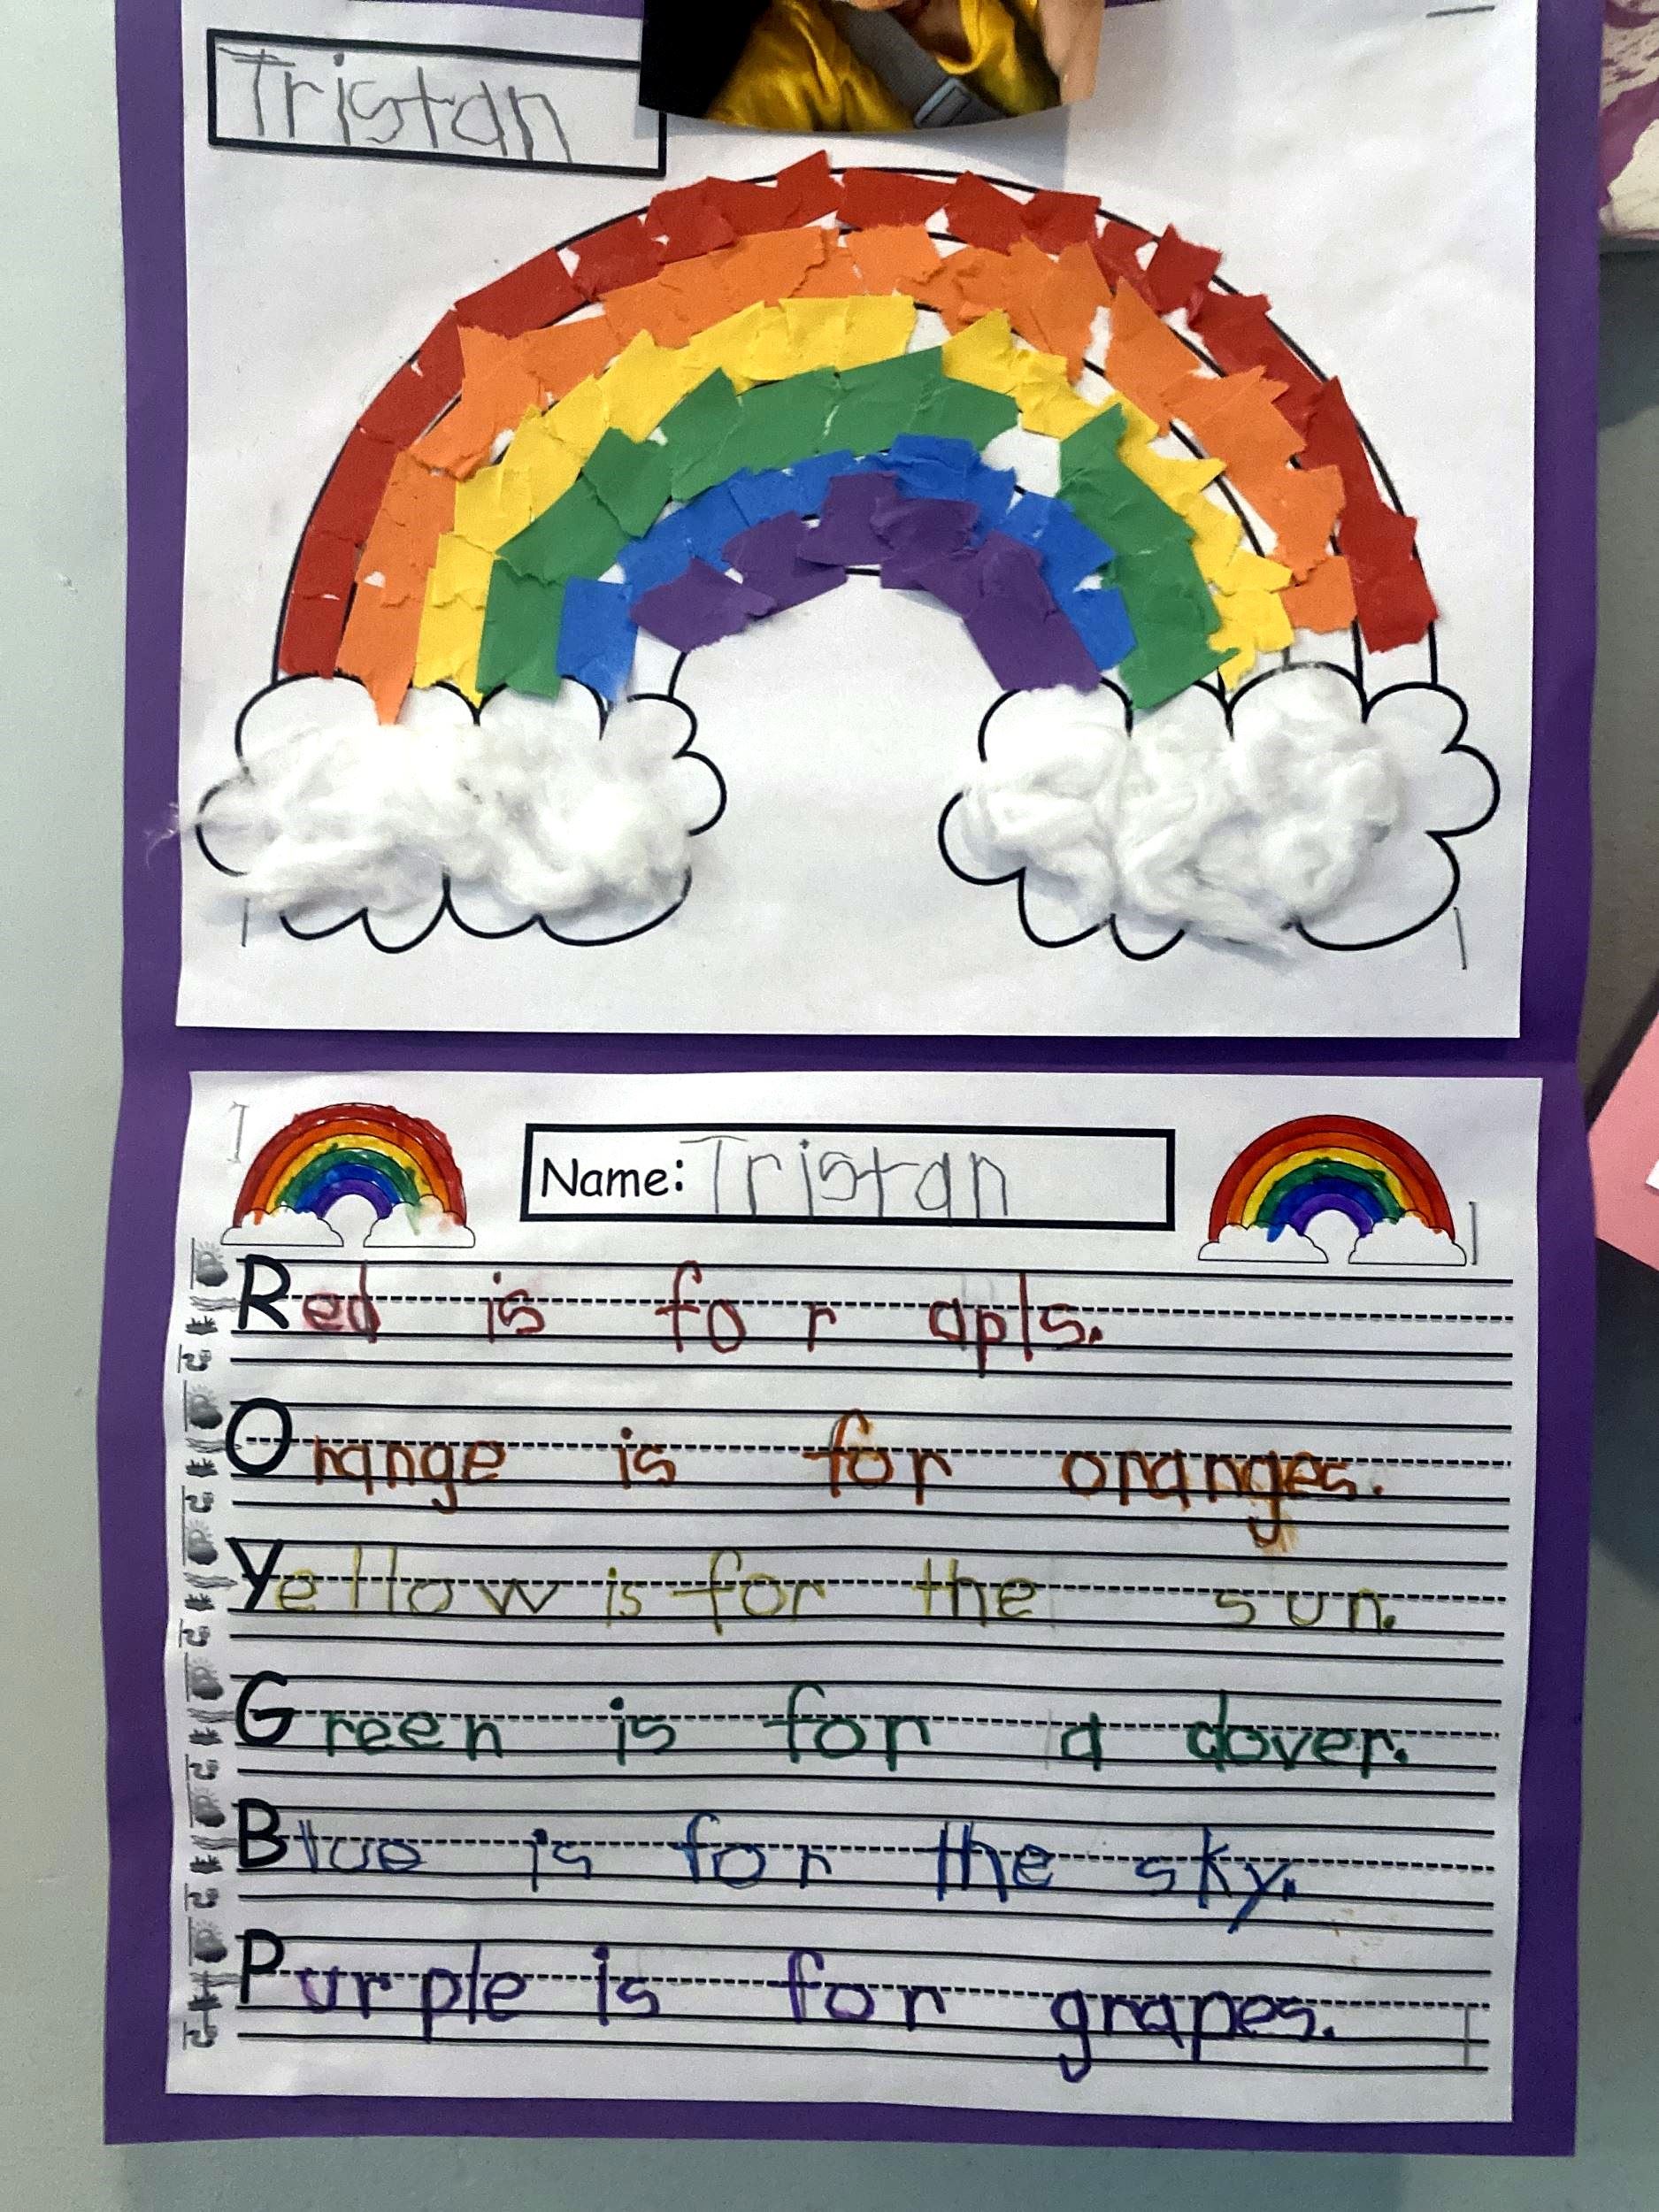 Tristan
Name: Tristan
Red is for apls.
Orange is for oranges.
Yellow is for the sun.
Green is for a clover.
Blue is for the sky.
Purple is for grapes.